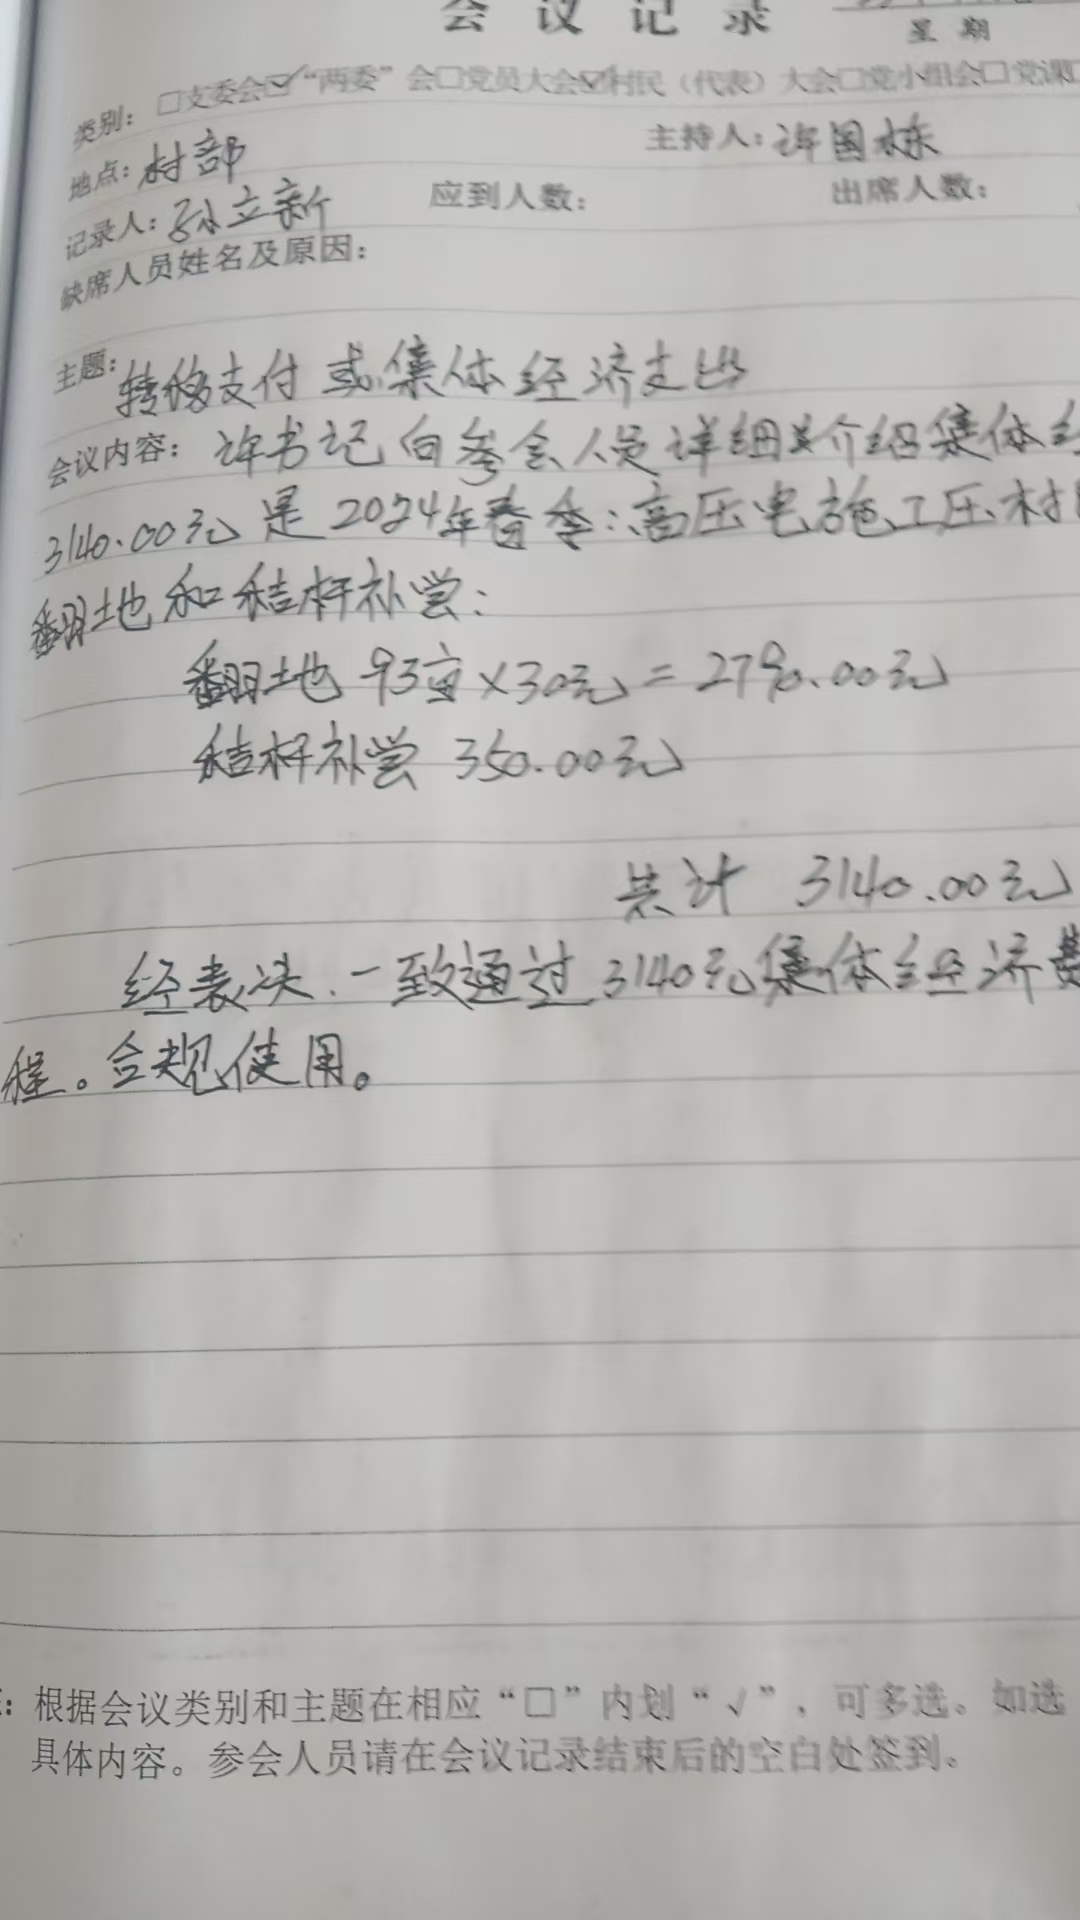 会议记录
星期
类别：□支委会☑“两委”会□党员大会☑村民（代表）大会□党小组会□党课
地点：村部 主持人：许国栋
记录人：孙立新 应到人数： 出席人数：
缺席人员姓名及原因：
主题：转移支付或集体经济支出
会议内容：许书记向参会人员详细介绍集体
3140.00元是2024年春季：高压电施工压村
翻地和秸秆补尝：
翻地 93亩×30元=2790.00元
秸秆补尝 350.00元
共计 3140.00元
经表决.一致通过3140元集体经济
程。合规使用。
：根据会议类别和主题在相应“□”内划“√”，可多选。如选
具体内容。参会人员请在会议记录结束后的空白处签到。